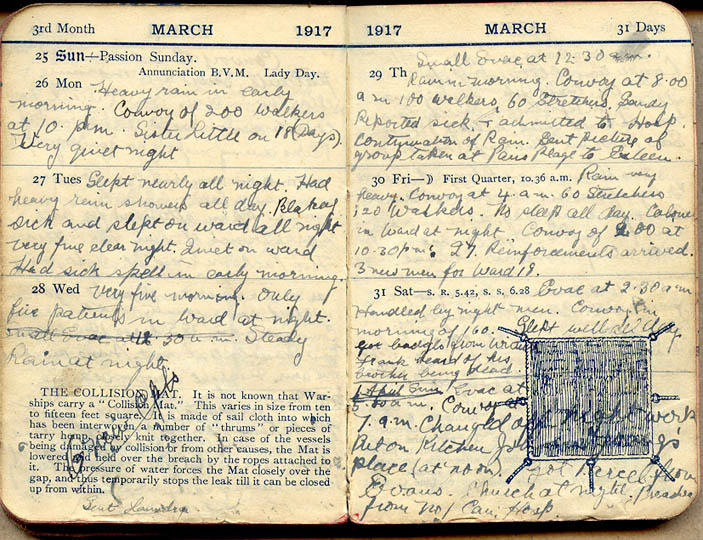 3rd Month MARCH 1917
25 Sun—Passion Sunday.
Annunciation B.V.M. Lady Day.
26 Mon Heavy rain in early
morning. Convoy of 200 walkers
at 10. p.m. Sister Little on 18 (Days).
Very quiet night
27 Tues Slept nearly all night. Had
heavy rain showers all day. Blakey
sick and slept on ward all night
very fine clear night. Quiet on ward
Had sick spell in early morning.
28 Wed Very fine morning. Only
five patients in ward at night.
Small Evac at 12.30 a.m. Steady
Rain at night
THE COLLISION MAT. It is not known that War-
ships carry a "Collision Mat." This varies in size from ten
to fifteen feet square. It is made of sail cloth into which
has been interwoven a number of "thrums" or pieces of
tarry rope closely knit together. In case of the vessels
being damaged by collision or from other causes, the Mat is
lowered and held over the breach by the ropes attached to
it. The pressure of water forces the Mat closely over the
gap, and thus temporarily stops the leak till it can be closed
up from within.
Sent
1917 MARCH 31 Days
Small Evac at 12.30 a.m.
29 Th Rain in morning. Convoy at 8.00
a m 100 walkers, 60 Stretchers. Sandy
Reported sick & admitted to Hosp.
Continuation of Rain. Sent picture of
group taken at Paris Plage to
30 Fri—☽ First Quarter, 10.36 a.m. Rain very
heavy. Convoy at 4. a.m. 60 Stretchers
120 Walkers. No sleep all day.
in Ward at night Convoy of 200 at
10.30 p.m. 27 Reinforcements arrived.
3 new men for Ward 18.
31 Sat—S. R. 5.42, S. S. 6.28 Evac at 2.30 a m
Handled by night men. Convoy in
morning of 160. Slept well all day
got from
Frank heard of his
brother being dead.
1 April Sun Evac at
5.00 a.m. Convoy at
7. a.m. Changed off night work
Put on Kitchen
place (at noon). Got Parcel from
Evans. Church at night.
from No 1 Can. Hosp.